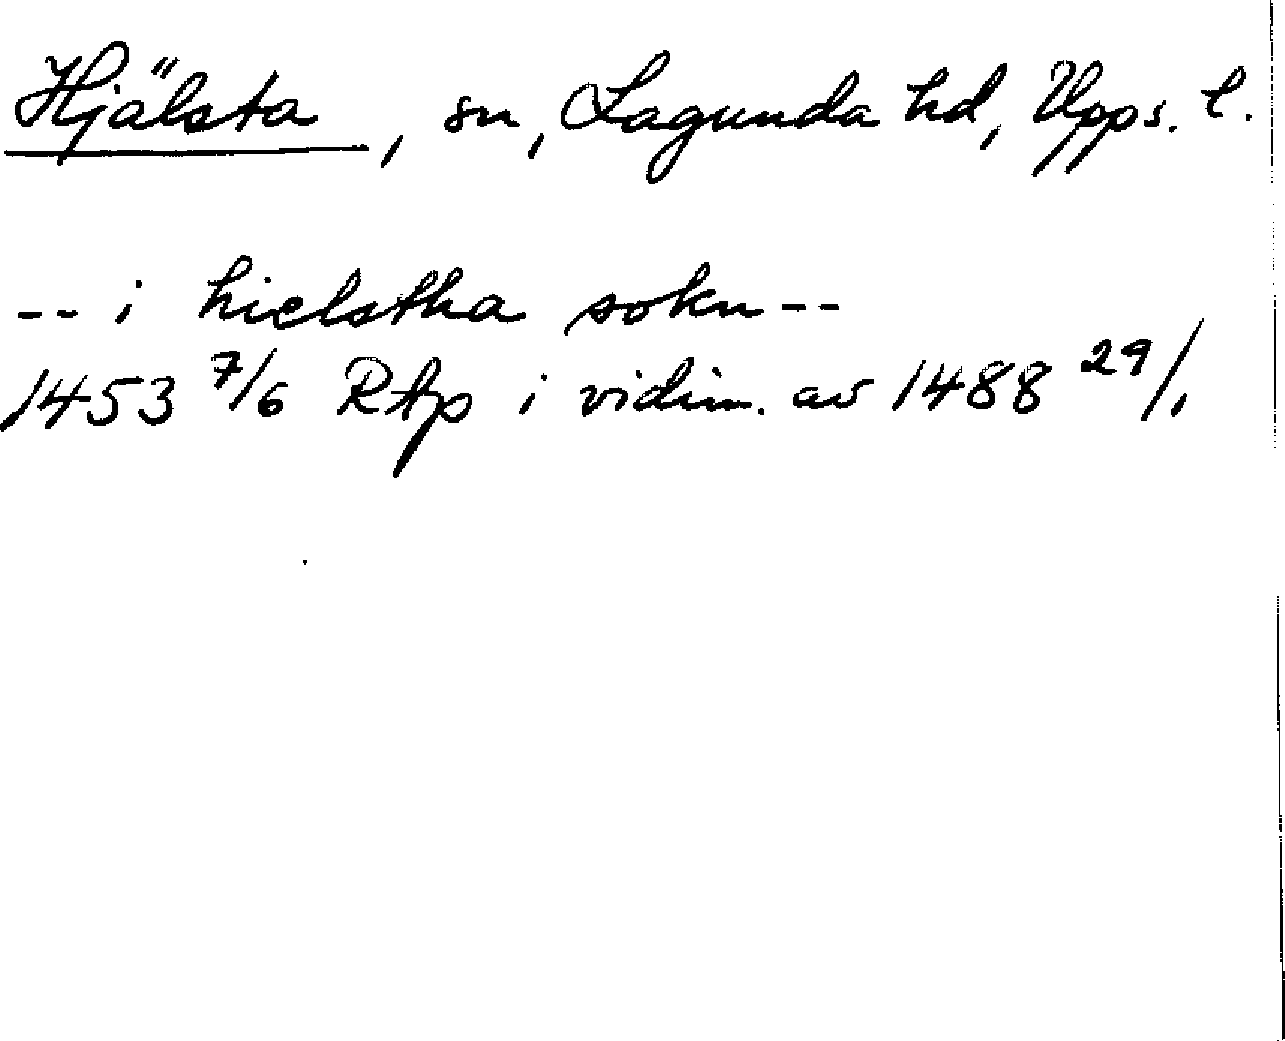 Hjälsta, sn, Lagunda hd, Upps. l.
-- i hielstha sokn --
1453 7/6 RAp i vidim. av 1488 29/1